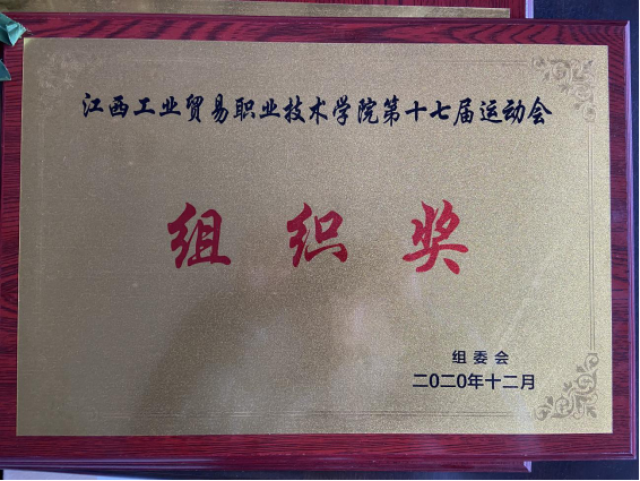 江西工业贸易职业技术学院第十七届运动会
组织奖
组委会
二〇二〇年十二月